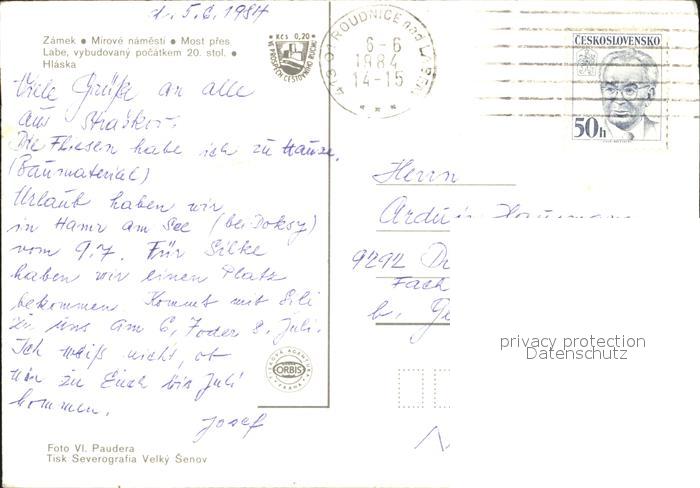 d. 5.6.1984
Zámek • Mírové náměstí • Most přes
Labe, vybudovaný počátkem 20. stol. •
Hláska
Kčs 0,20
VE PROSPĚCH CESTOVNÍHO RUCHU
413 01 ROUDNICE nad LABEM
6-6
1984
14-15
ČESKOSLOVENSKO
50h
Viele Grüße an alle
aus Straškov.
Die Fliesen habe ich zu Hause.
(Baumaterial)
Urlaub haben wir
in Hamr am See (bei Doksy)
vom 9.7. Für Silke
haben wir einen Platz
bekommen. Kommt mit Sili
zu uns am 6, 7 oder 8. Juli.
Ich weiß nicht, ob
wir zu Euch bis Juli
kommen.
Josef
Herrn
9292
Fach
b. Ge
privacy protection
Datenschutz
ORBIS
PRAHA
Foto Vl. Paudera
Tisk Severografia Velký Šenov